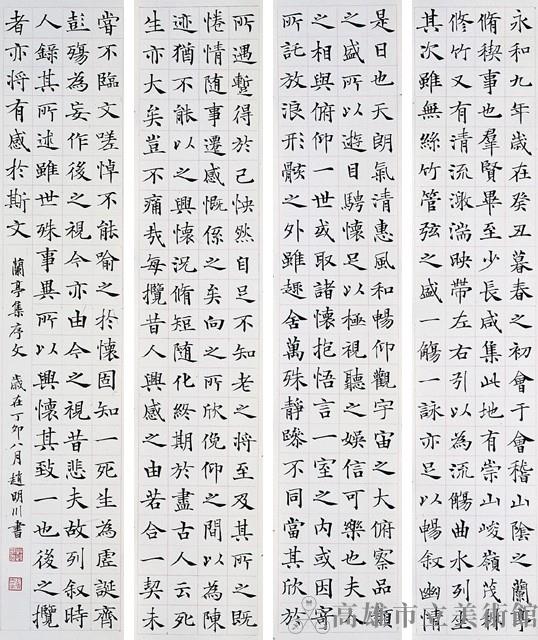 永和九年歲在癸丑暮春之初會于會稽山陰之蘭亭
脩稧事也羣賢畢至少長咸集此地有崇山峻嶺茂林
修竹又有清流激湍映帶左右引以為流觴曲水列坐
其次雖無絲竹管弦之盛一觴一詠亦足以暢叙幽情
是日也天朗氣清惠風和暢仰觀宇宙之大俯察品類
之盛所以遊目騁懷足以極視聽之娛信可樂也夫人
之相與俯仰一世或取諸懷抱悟言一室之內或因寄
所託放浪形骸之外雖趣舍萬殊靜躁不同當其欣於
所遇蹔得於己怏然自足不知老之將至及其所之既
惓情隨事遷感慨係之矣向之所欣俛仰之間以為陳
迹猶不能以之興懷況脩短隨化終期於盡古人云死
生亦大矣豈不痛哉每攬昔人興感之由若合一契未
甞不臨文嗟悼不能喻之於懷固知一死生為虛誕齊
彭殤為妄作後之視今亦由今之視昔悲夫故列叙時
人錄其所述雖世殊事異所以興懷其致一也後之攬
者亦將有感於斯文 蘭亭集序文 歲在丁卯八月趙明川書
高雄市立美術館